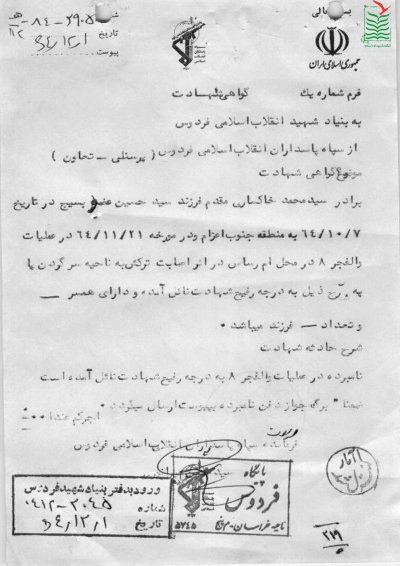 بسمه تعالی
شماره ۲۹۰۵-۸۴-ه
تاریخ ۶۴/۱۲/۱
پیوست
جمهوری اسلامی ایران
فرم شماره یک گواهی شهادت
به بنیاد شهید انقلاب اسلامی فردوس
از سپاه پاسداران انقلاب اسلامی فردوس ( پرسنلی - تعاون )
موضوع گواهی شهادت
برادر سید محمد خاکساری مقدم فرزند سید حسین عضو بسیج در تاریخ
۶۴/۱۰/۷ به منطقه جنوب اعزام و در مورخه ۶۴/۱۱/۲۱ در عملیات
والفجر ۸ در محل ام رساس در اثر اصابت ترکش به ناحیه سر گردن پا
به شرح ذیل به درجه رفیع شهادت نائل آمده و دارای همسر —
و تعداد — فرزند میباشد
شرح حادثه شهادت
نامبرده در عملیات والفجر ۸ به درجه رفیع شهادت نائل آمده است
ضمنا" برگ جواز دفن نامبرده بپیوست ارسال میگردد
اجرکم عندا...
فرمانده سپاه پاسداران انقلاب اسلامی فردوس
پایگاه
فردوس
ناحیه خراسان
۵۷۴۵
ورود بدفتر بنیاد شهید فردوس
شماره ۰۴۱۲-۲۰۴۵
تاریخ ۶۴/۱۲/۱
آمار
۲۱۹